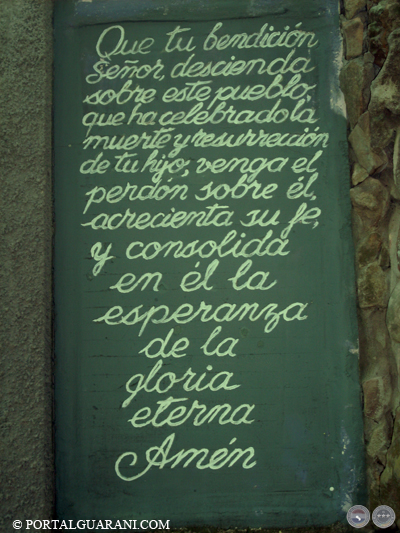 Que tu bendición
Señor, descienda
sobre este pueblo,
que ha celebrado la
muerte y resurrección
de tu hijo, venga el
perdón sobre él,
acrecienta su fe,
y consolida
en él la
esperanza
de la
gloria
eterna
Amén
© PORTALGUARANI.COM